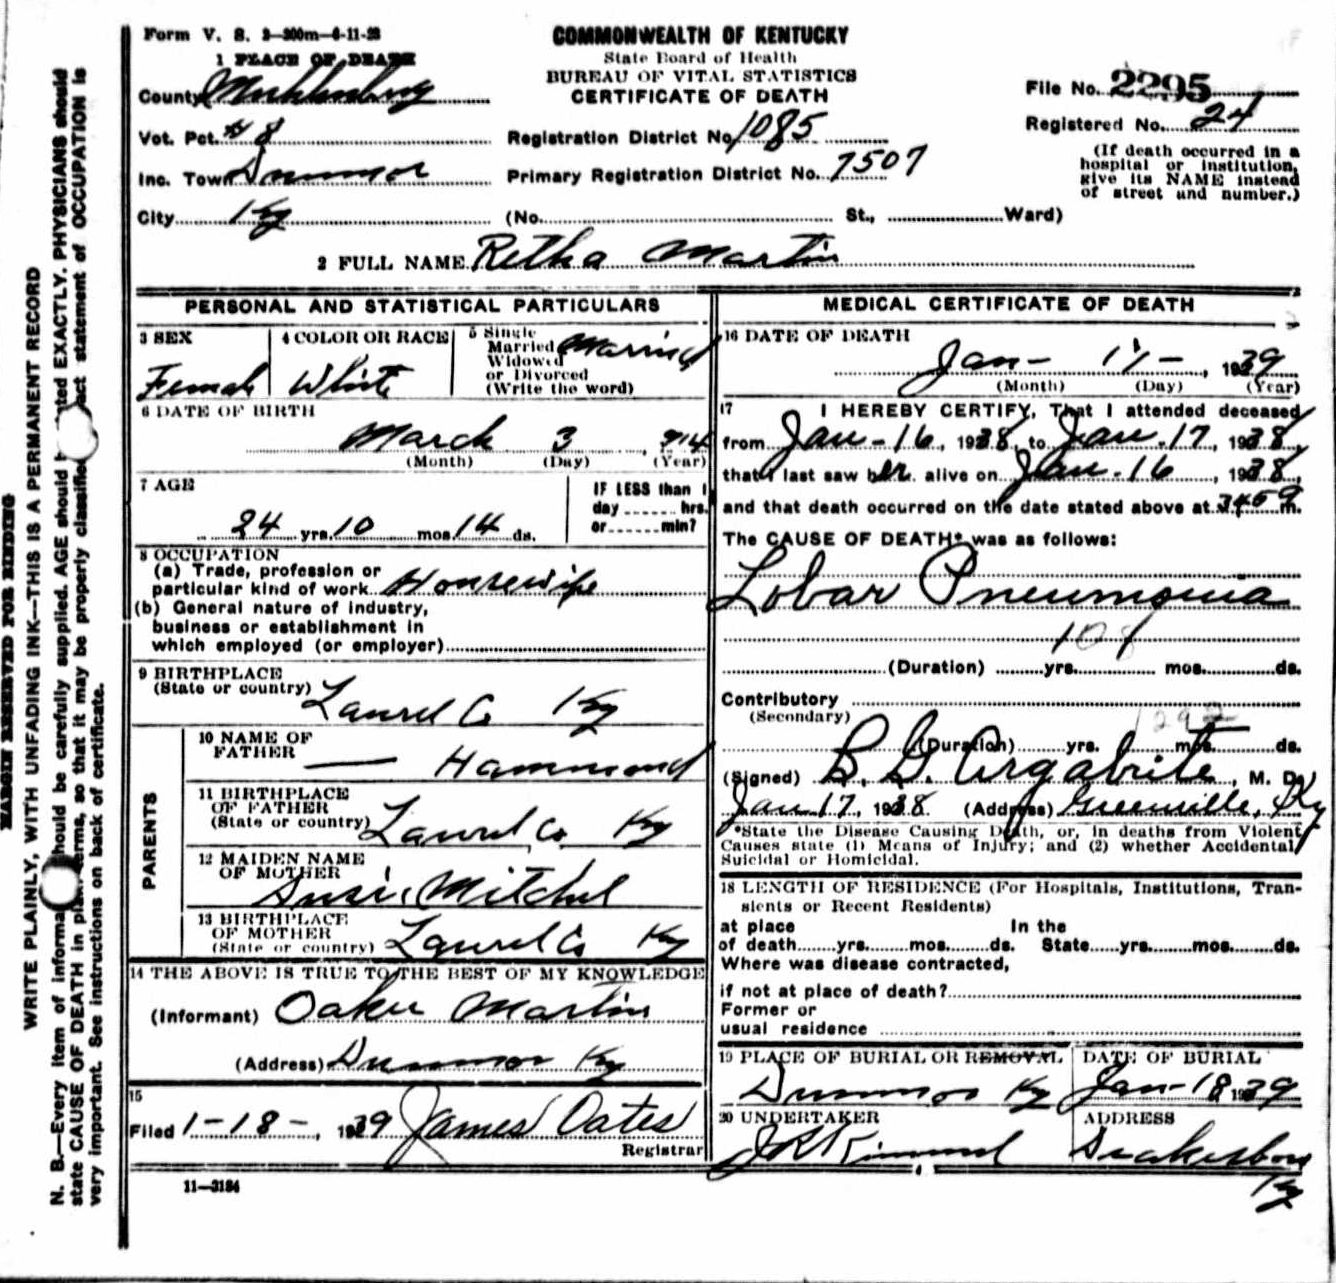 Form V. S. 3-300m-6-11-28
COMMONWEALTH OF KENTUCKY
State Board of Health
BUREAU OF VITAL STATISTICS
CERTIFICATE OF DEATH
1 PLACE OF DEATH
County Muhlenberg
Vot. Pct. # 8
Inc. Town Dunmor
City Ky
Registration District No. 1085
Primary Registration District No. 7507
(No. St., Ward)
File No. 2295
Registered No. 24
(If death occurred in a
hospital or institution,
give its NAME instead
of street and number.)
2 FULL NAME Retha Martin
PERSONAL AND STATISTICAL PARTICULARS
3 SEX
Female
4 COLOR OR RACE
White
5 Single
Married
Widowed
or Divorced
(Write the word)
Married
6 DATE OF BIRTH
March 3, 914
(Month) (Day) (Year)
7 AGE
24 yrs. 10 mos. 14 ds.
IF LESS than 1
day hrs.
or min?
8 OCCUPATION
(a) Trade, profession or
particular kind of work Housewife
(b) General nature of industry,
business or establishment in
which employed (or employer)
9 BIRTHPLACE
(State or country) Laurel Co Ky
PARENTS
10 NAME OF
FATHER — Hammond
11 BIRTHPLACE
OF FATHER
(State or country) Laurel Co. Ky
12 MAIDEN NAME
OF MOTHER
Susie Mitchel
13 BIRTHPLACE
OF MOTHER
(State or country) Laurel Co Ky
14 THE ABOVE IS TRUE TO THE BEST OF MY KNOWLEDGE
(Informant) Oaker Martin
(Address) Dunmor Ky
15
Filed 1-18-, 1939 James Oates
Registrar
11-3184
MEDICAL CERTIFICATE OF DEATH
16 DATE OF DEATH
Jan- 17-, 1939
(Month) (Day) (Year)
17 I HEREBY CERTIFY, That I attended deceased
from Jan-16, 1938, to Jan-17, 1938,
that I last saw her alive on Jan-16, 1938,
and that death occurred on the date stated above at m.
The CAUSE OF DEATH* was as follows:
Lobar Pneumonia
108
(Duration) yrs. mos. ds.
Contributory
(Secondary)
(Duration) yrs. mos. ds.
(Signed) B. G. Argabrite, M. D.
Jan 17, 1938 (Address) Greenville, Ky
*State the Disease Causing Death, or, in deaths from Violent
Causes state (1) Means of Injury; and (2) whether Accidental,
Suicidal or Homicidal.
18 LENGTH OF RESIDENCE (For Hospitals, Institutions, Tran-
sients or Recent Residents)
at place In the
of death yrs. mos. ds. State yrs. mos. ds.
Where was disease contracted,
if not at place of death?
Former or
usual residence
19 PLACE OF BURIAL OR REMOVAL
Dunmor Ky
DATE OF BURIAL
Jan-18, 1939
20 UNDERTAKER
J R Kimmel
ADDRESS
Drakesboro
Ky
MARGIN RESERVED FOR BINDING
WRITE PLAINLY, WITH UNFADING INK—THIS IS A PERMANENT RECORD
N. B.—Every item of information should be carefully supplied. AGE should be stated EXACTLY. PHYSICIANS should
state CAUSE OF DEATH in plain terms, so that it may be properly classified. Exact statement of OCCUPATION is
very important. See instructions on back of certificate.